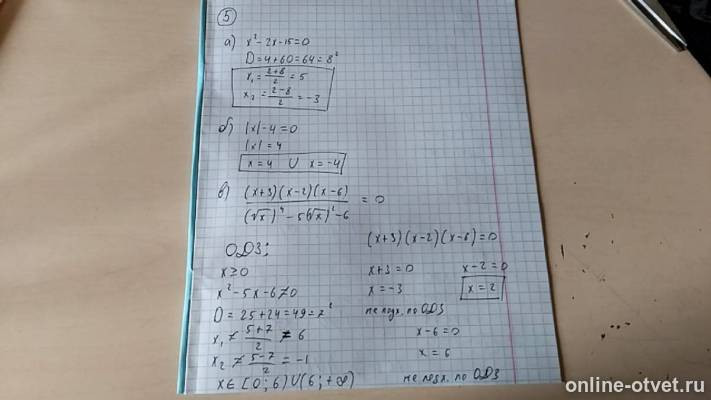 5
а) x² - 2x - 15 = 0
D = 4 + 60 = 64 = 8²
x₁ = (2+8)/2 = 5
x₂ = (2-8)/2 = -3
б) |x| - 4 = 0
|x| = 4
x = 4 U x = -4
в) (x+3)(x-2)(x-6)/((√x)⁴ - 5(√x)² - 6) = 0
ОДЗ:
x ≥ 0
x² - 5x - 6 ≠ 0
D = 25 + 24 = 49 = 7²
x₁ ≠ (5+7)/2 ≠ 6
x₂ ≠ (5-7)/2 = -1
x ∈ [0; 6) U (6; +∞)
(x+3)(x-2)(x-6) = 0
x+3 = 0
x = -3
не подх. по ОДЗ
x-2 = 0
x = 2
x-6 = 0
x = 6
не подх. по ОДЗ
online-otvet.ru